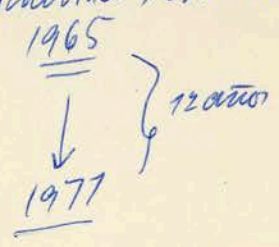 1965
12 años
1977